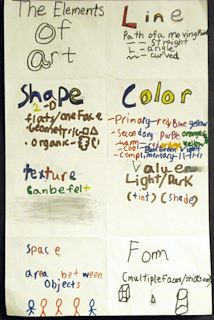 The Elements
Of
art
Line
Path of a moving Point
straight
angle
curved
Shape
2-D
flat/one Face
geometric
organic
Color
Primary-red Blue yellow
Secondary Purple orange
warm-red yellow
Cool-Blue Green Violet
Complimentary
Value
Light/Dark
(tint) (Shade)
texture
Canbefelt
Space
area between
Objects
Fom
(multiple Faces/sticks out)